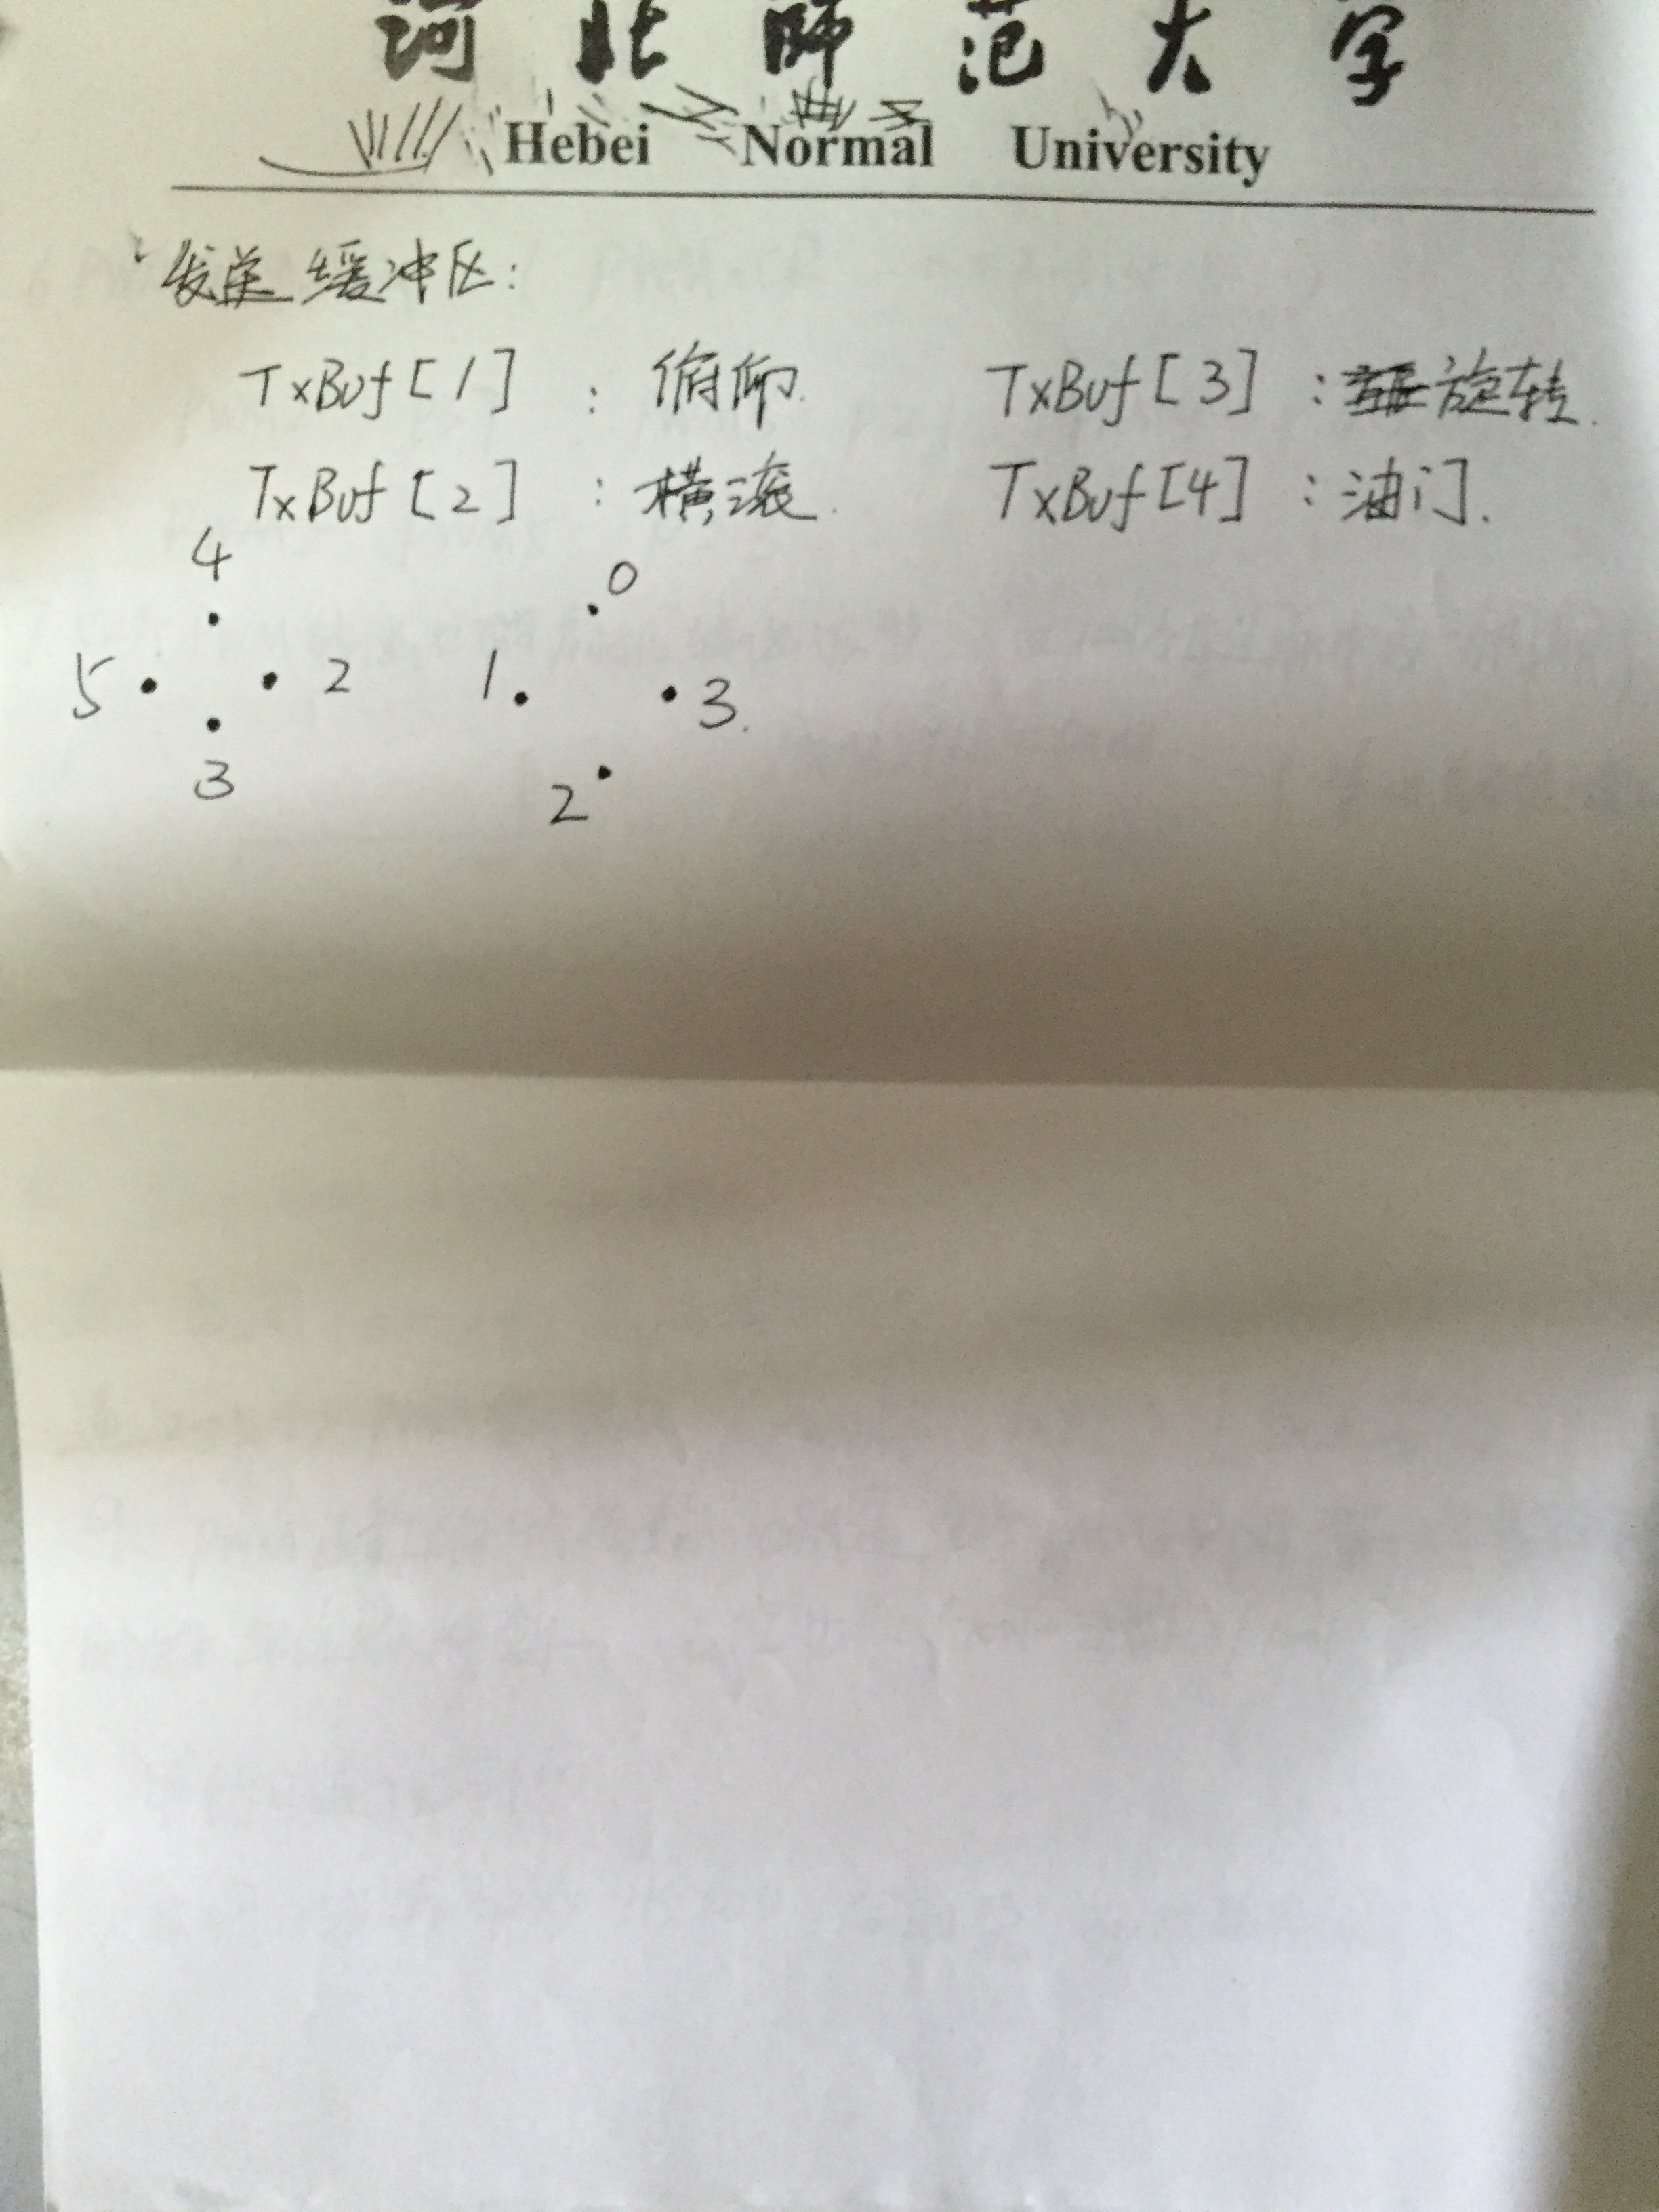 河北师范大学
Hebei Normal University
发送缓冲区:
TxBuf[1] : 俯仰. TxBuf[3] : 旋转.
TxBuf[2] : 横滚. TxBuf[4] : 油门.
4 0
5 2 1 3.
3 2